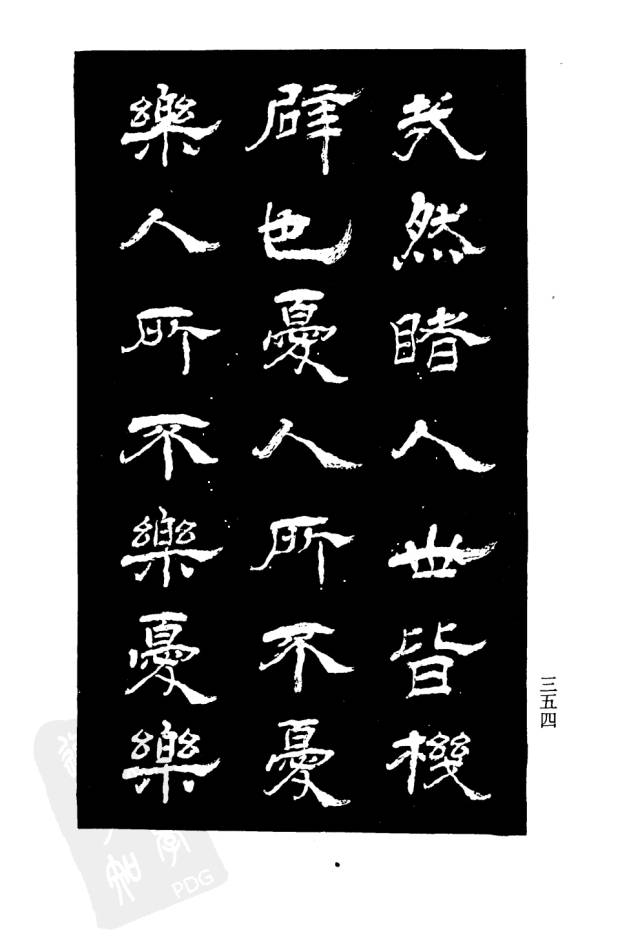 然睹人世皆機
辟也憂人所不憂
樂人所不樂憂樂
三五四
PDG